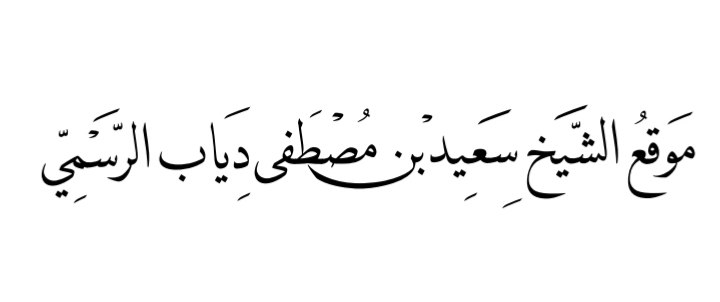 مَوَقعُ الشَّيَخ سَعَيِدِبْن مُصْطَفى دِيَاب الرَّسَمْيِّ